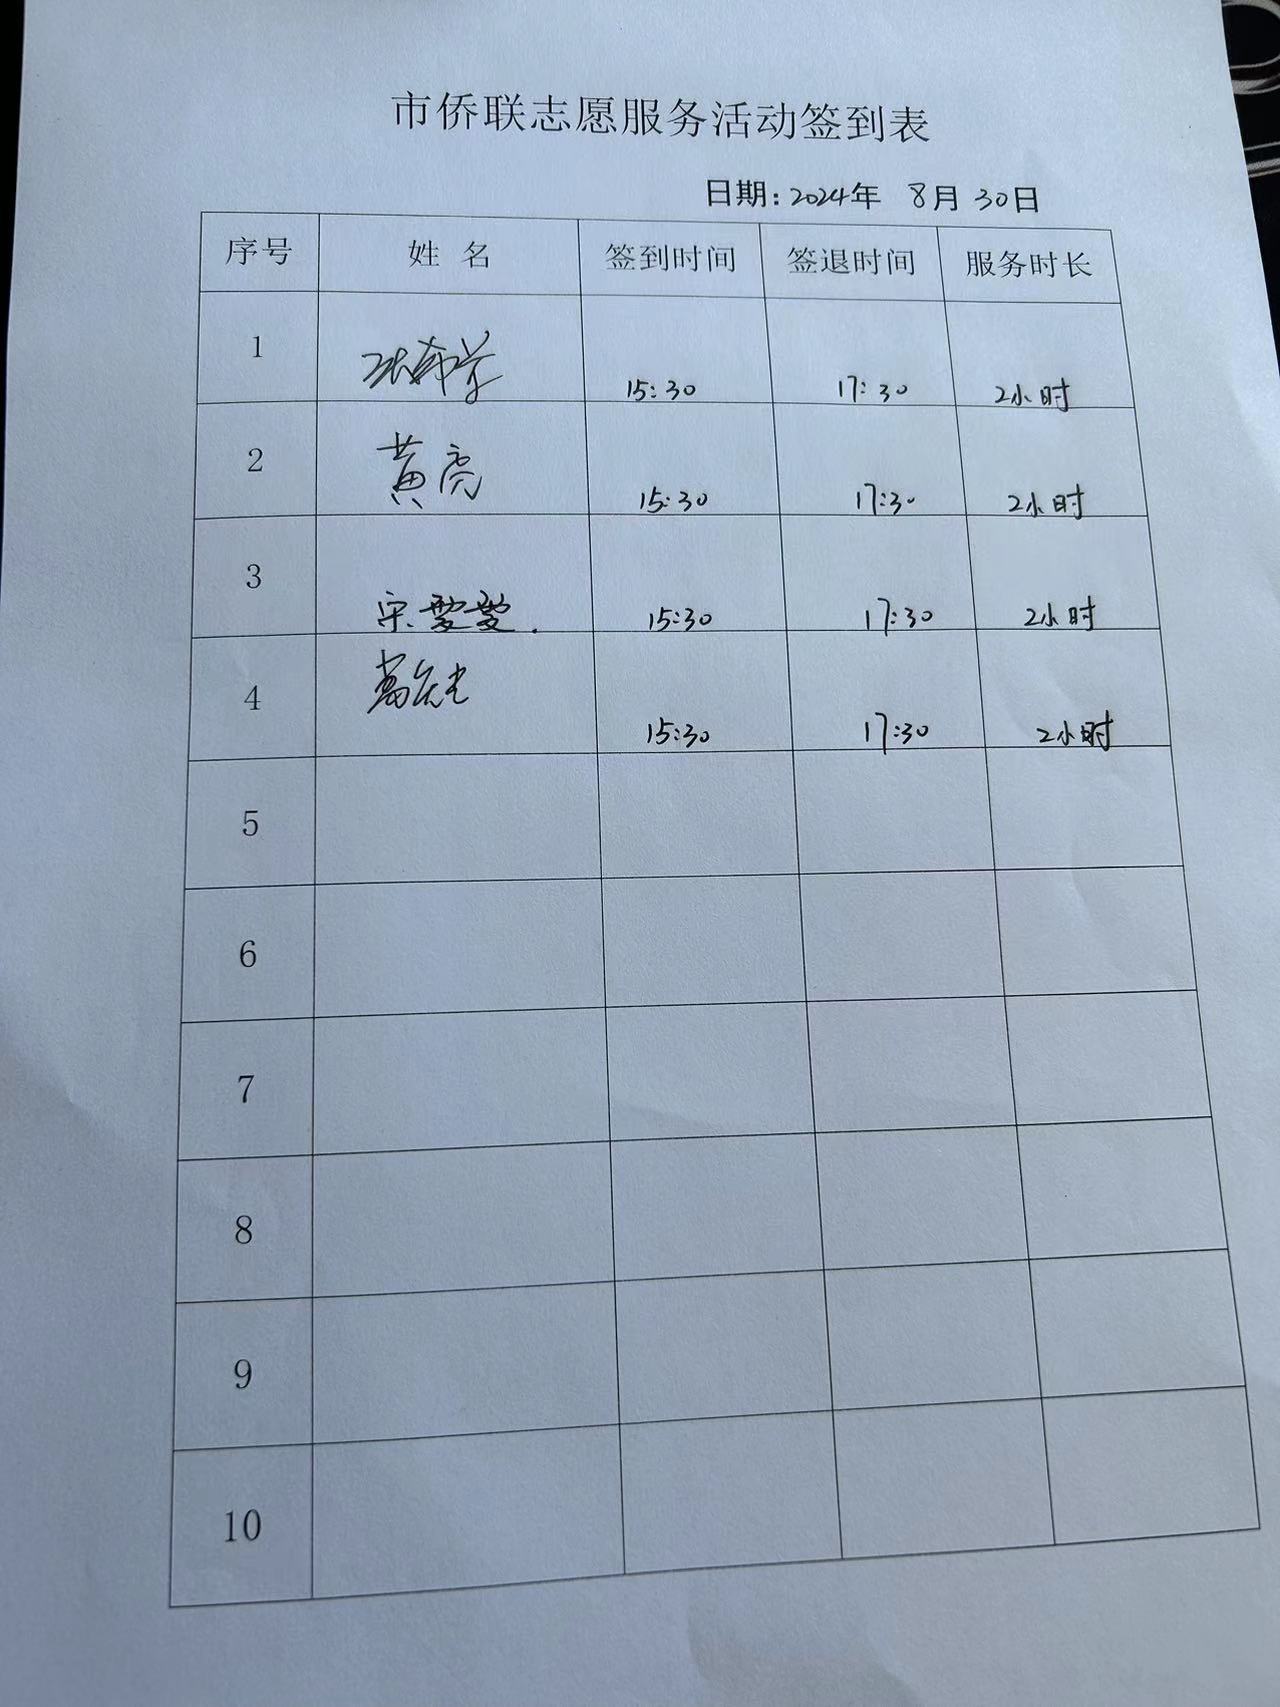 市侨联志愿服务活动签到表
日期：2024年 8月 30日
序号 姓 名 签到时间 签退时间 服务时长
1 15:30 17:30 2小时
2 黄亮 15:30 17:30 2小时
3 宋雯雯. 15:30 17:30 2小时
4 15:30 17:30 2小时
5
6
7
8
9
10